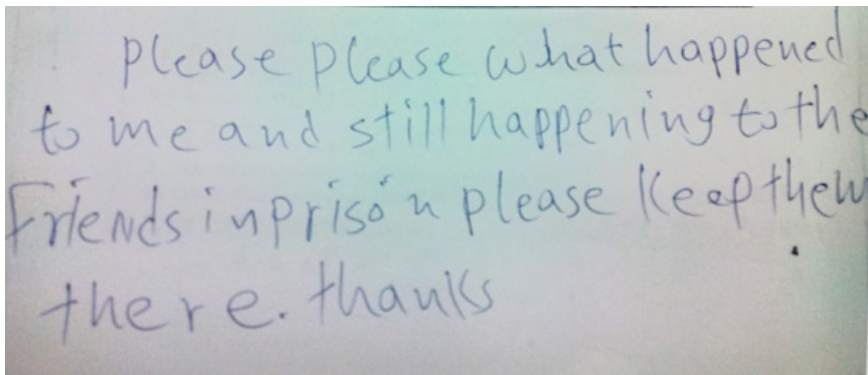 please please what happened
to me and still happening to the
Friends in prison please Keep them
there. thanks